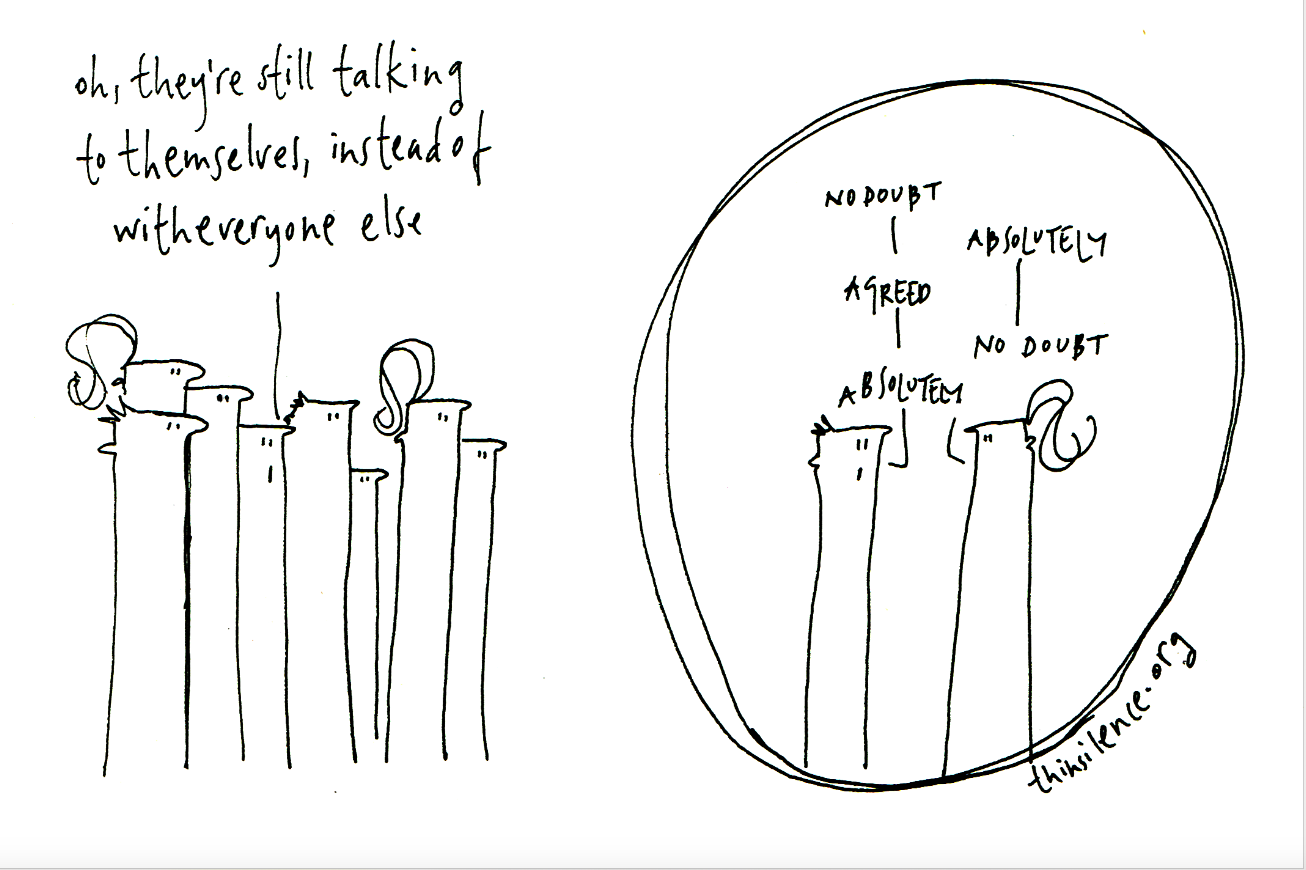 oh, they're still talking
to themselves, instead of
witheveryone else
NO DOUBT
AGREED
ABSOLUTELY
ABSOLUTELY
NO DOUBT
thinsilence.org